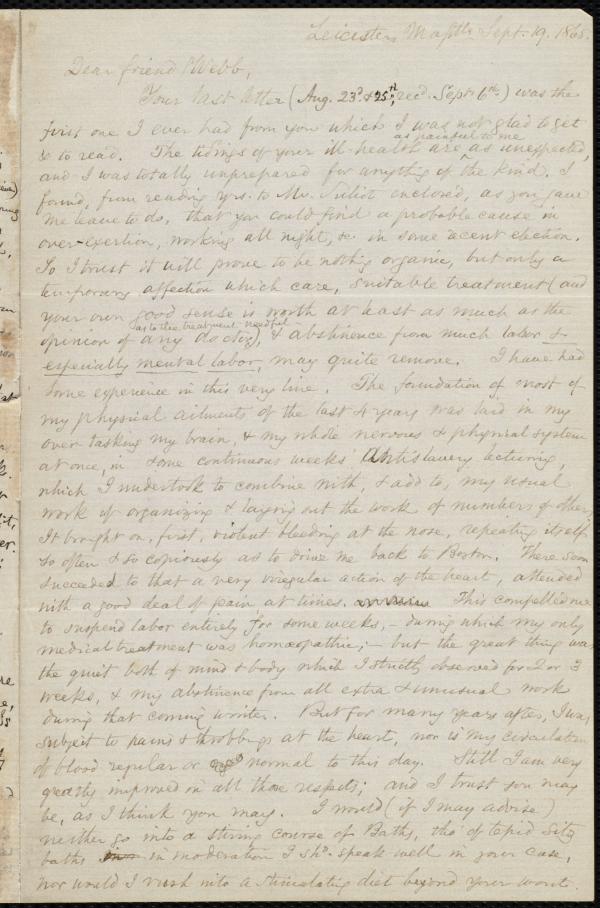 Leicester, Massts. Sept. 19. 1865.
Dear friend Webb,
Your last letter (Aug. 23d. & 25th, recd. Sept. 6th.) was the
first one I ever had from you which I was not glad to get
& to read. The tidings of your ill-health are as unexpected,
as painful to me
and I was totally unprepared for anything of the kind. I
found, from reading yrs. to Mr. inclosed, as you gave
me leave to do, that you could find a probable cause in
over-exertion, working all night, &c. in some recent election.
So I trust it will prove to be nothing organic, but only a
temporary affection which care, suitable treatment (and
your own good sense is worth at least as much as the
as to the treatment needful
opinion of any doctor), & abstinence from much labor &
especially mental labor, may quite remove. I have had
some experience in this very line. The foundation of most of
my physical ailments of the last 4 years was laid in my
over-tasking my brain, & my whole nervous & physical system
at once, in some continuous weeks' Antislavery lecturing,
which I undertook to combine with, & add to, my usual
work of organizing & laying out the work of numbers of others.
It brought on, first, violent bleeding at the nose, repeating itself
so often & so copiously as to drive me back to Boston. There soon
succeeded to that a very irregular action of the heart, attended
with a good deal of pain, at times. This compelled me
to suspend labor entirely for some weeks, – during which my only
medical treatment was homœopathic; – but the great thing was
the quiet both of mind & body which I strictly observed for 2 or 3
weeks, & my abstinence from all extra & unusual work
during that coming winter. But for many years after, I was
subject to pains & throbbings at the heart, nor is my circulation
of blood regular or normal to this day. Still I am very
greatly improved in all those respects; and I trust you may
be, as I think you may. I would (if I may advise)
neither go into a strong course of Baths, tho' of tepid Sitz
baths in moderation I shd. speak well in your case,
nor would I rush into a stimulating diet beyond your wont.